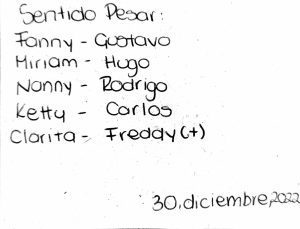 Sentido Pesar:
Fanny - Gustavo
Miriam - Hugo
Nanny - Rodrigo
Ketty - Carlos
Clarita - Freddy (+)
30, diciembre, 2022